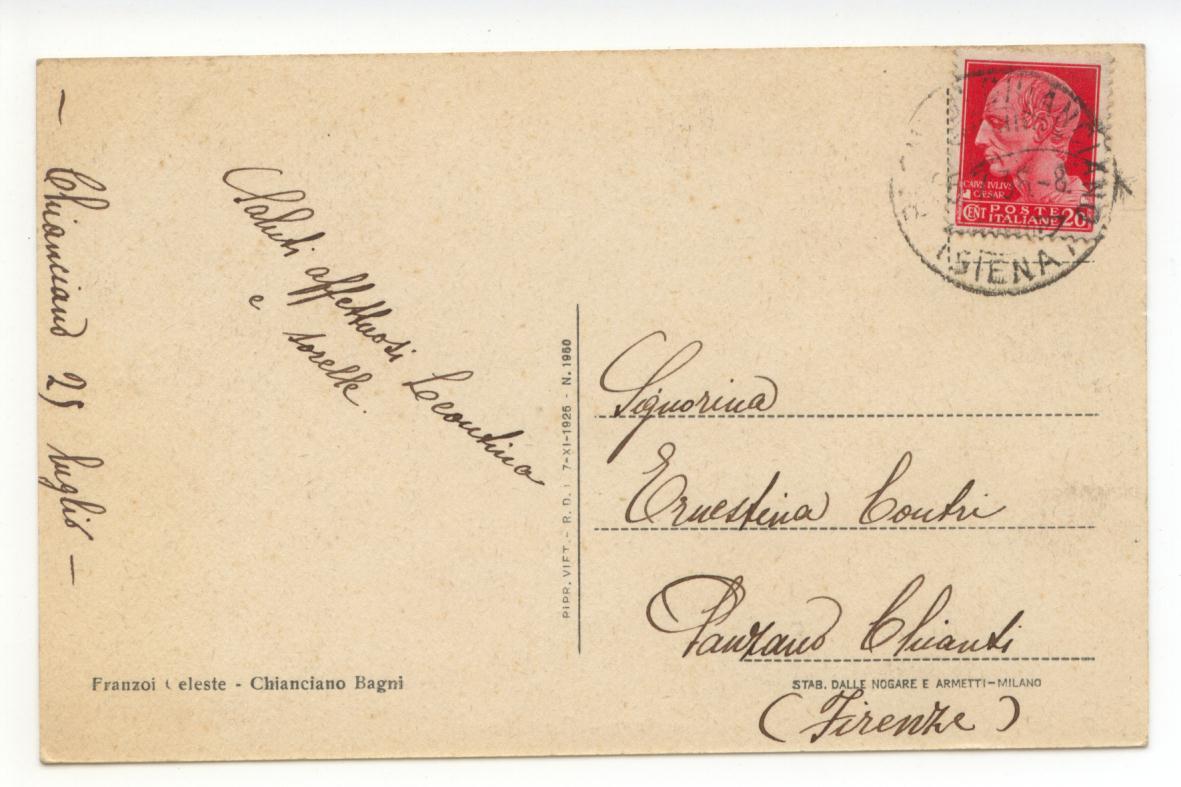 — Chianciano 25 luglio —
Saluti affettuosi Leontina
e sorelle.
Franzoi Celeste - Chianciano Bagni
RIPR. VIET. - R. D. L. 7-XI-1925 - N. 1950
CAIVS IVLIVS
CAESAR
CENT POSTE ITALIANE 20
CHIANCIANO
(SIENA)
Signorina
Ernestina Contri
Panzano Chianti
STAB. DALLE NOGARE E ARMETTI-MILANO
(Firenze)